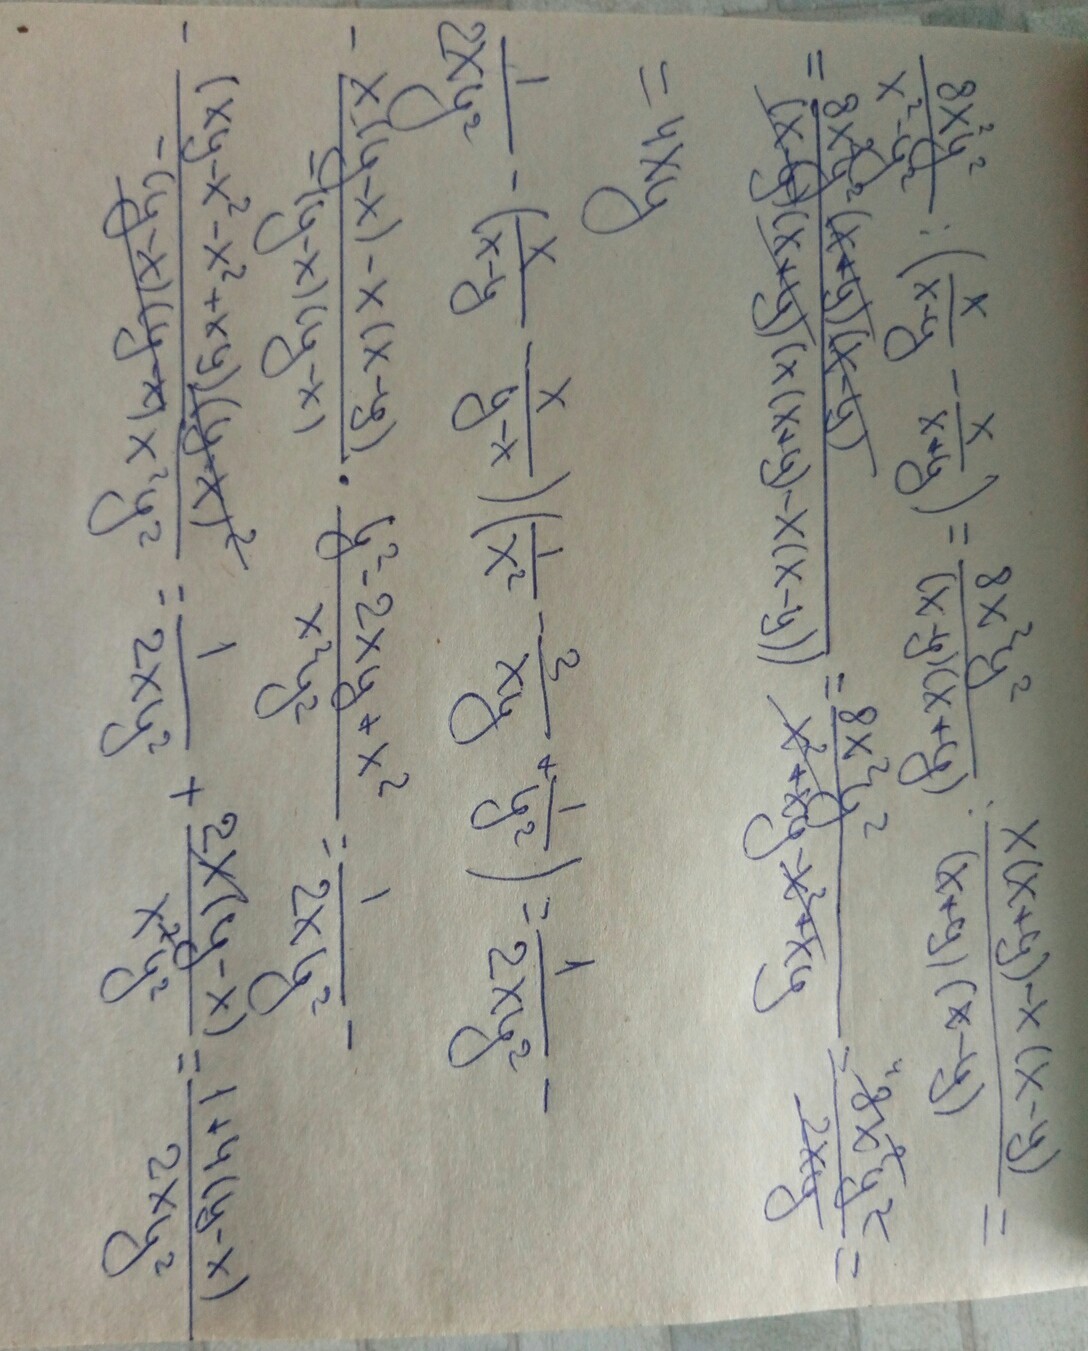 8x²y²/(x²-y²) : (x/(x-y) - x/(x+y)) = 8x²y²/((x-y)(x+y)) : (x(x+y)-x(x-y))/((x+y)(x-y)) =
= 8x²y²(x+y)(x-y)/((x-y)(x+y)(x(x+y)-x(x-y))) = 8x²y²/(x²+xy-x²+xy) = ⁴8x²y²/(2xy) =
= 4xy
1/(2xy²) - (x/(x-y) - x/(y-x))(1/x² - 2/(xy) + 1/y²) = 1/(2xy²) -
- (x(y-x)-x(x-y))/(=-(y-x)(y-x)) · (y²-2xy+x²)/(x²y²) = 1/(2xy²) -
- (xy-x²-x²+xy)(y-x)²/(-(y-x)(y-x)x²y²) = 1/(2xy²) + 2x(y-x)/(x²y²) = (1+4(y-x))/(2xy²)